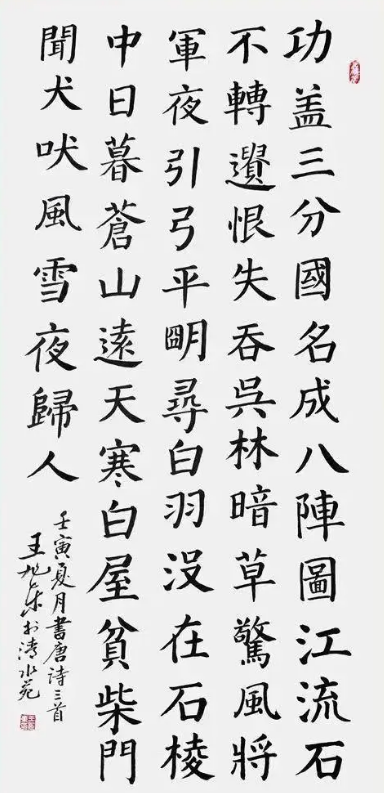 功盖三分國名成八陣圖江流石
不轉遺恨失吞吳林暗草驚風將
軍夜引弓平朙尋白羽没在石棱
中日暮蒼山遠天寒白屋貧柴門
聞犬吠風雪夜歸人
壬寅夏月書唐詩三首
王旭 水苑